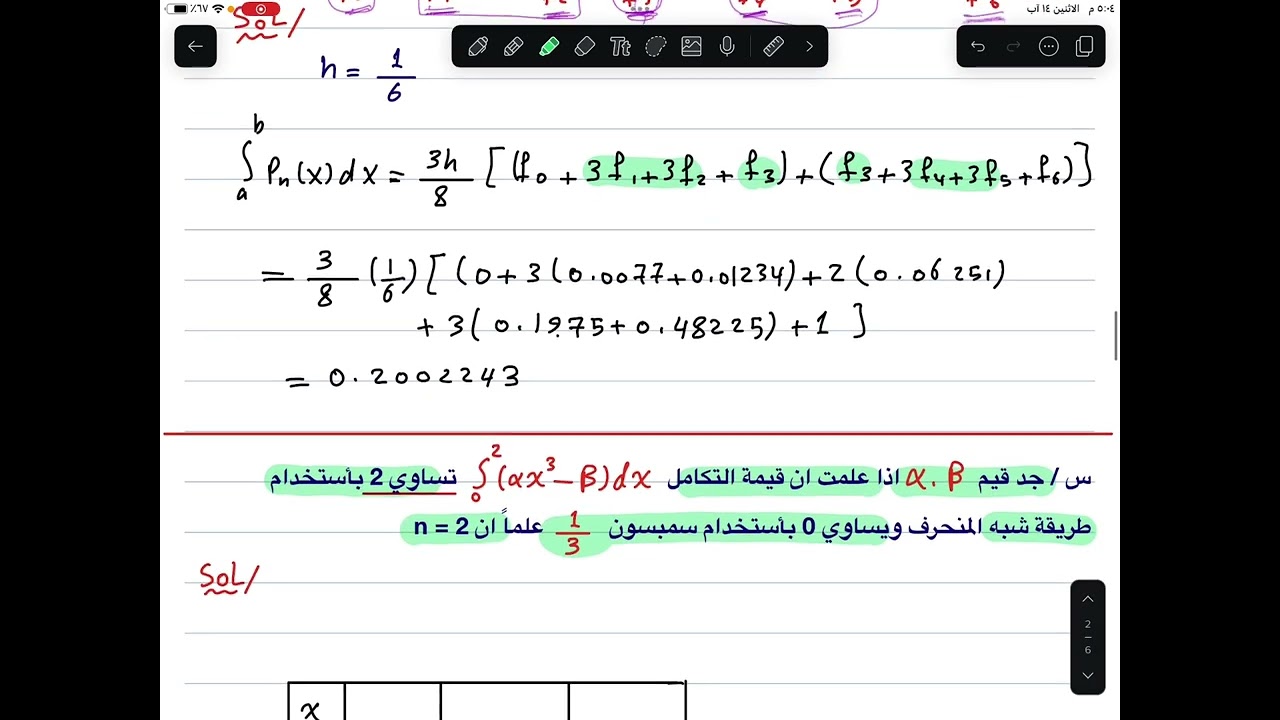 ٥:٠٤ م الاثنين ١٤ آب
٦٧٪
SOL/
Tt
h = 1/6
∫_a^b Pn(x)dx = 3h/8 [(f0 + 3f1+3f2 + f3) + (f3+3f4+3f5+f6)]
= 3/8 (1/6) [(0+3(0.0077+0.01234)+2(0.06251)
+3(0.1975+0.48225)+1]
= 0.2002243
س / جد قيم α, β اذا علمت ان قيمة التكامل ∫_0^2 (αx^3-β)dx تساوي 2 بأستخدام
طريقة شبه المنحرف ويساوي 0 بأستخدام سمبسون 1/3 علماً ان n = 2
SOL/
2
6
x